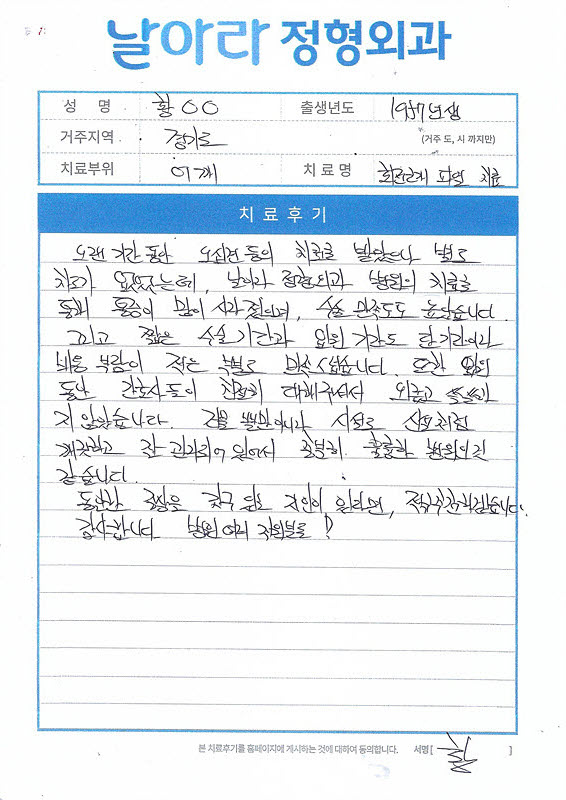 날아라 정형외과
성 명 황○○ 출생년도 1957년생
거주지역 경기도 (거주 도, 시 까지만)
치료부위 어깨 치료명 회전근개 파열 치료
치료후기
오랜 기간 동안 오십견 등의 치료를 받았으나 별로
치료가 없었는데, 날아라 정형외과 병원의 치료를
통해 통증이 많이 사라졌으며, 수술 만족도도 높았습니다.
그리고 짧은 수술기간과 입원 기간도 단기간이라
비용 부담이 적은 부분도 만족스럽습니다. 또한 입원
동안 간호사들이 친절히 대해주셔서 외롭고 쓸쓸하
지 않았습니다. 건물 뿐만 아니라 시설도 신설처럼
깨끗하고 잘 관리되어 있어서 충분히 훌륭한 병원인 것
같습니다.
동일한 질환을 갖구 있는 지인이 있다면, 적극추천하겠습니다.
감사합니다 병원 여러 직원분들!
본 치료후기를 홈페이지에 게시하는 것에 대하여 동의합니다. 서명 [ ]